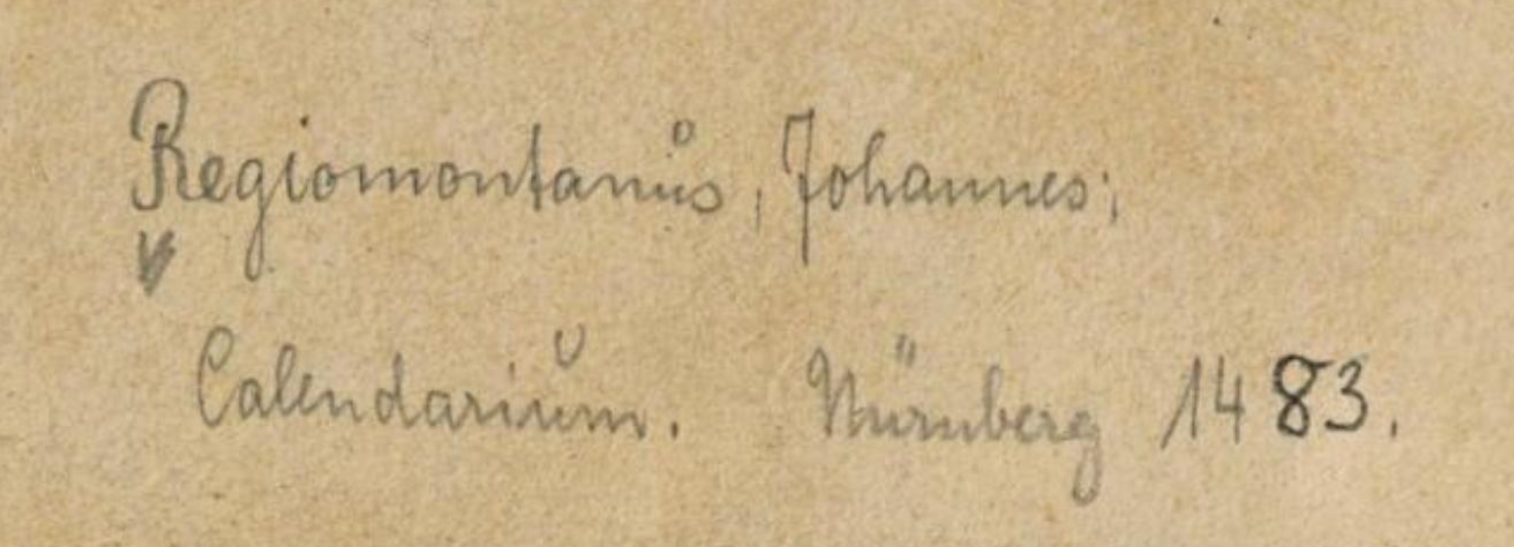 Regiomontanus, Johannes;
Calendarium. Nürnberg 1483.